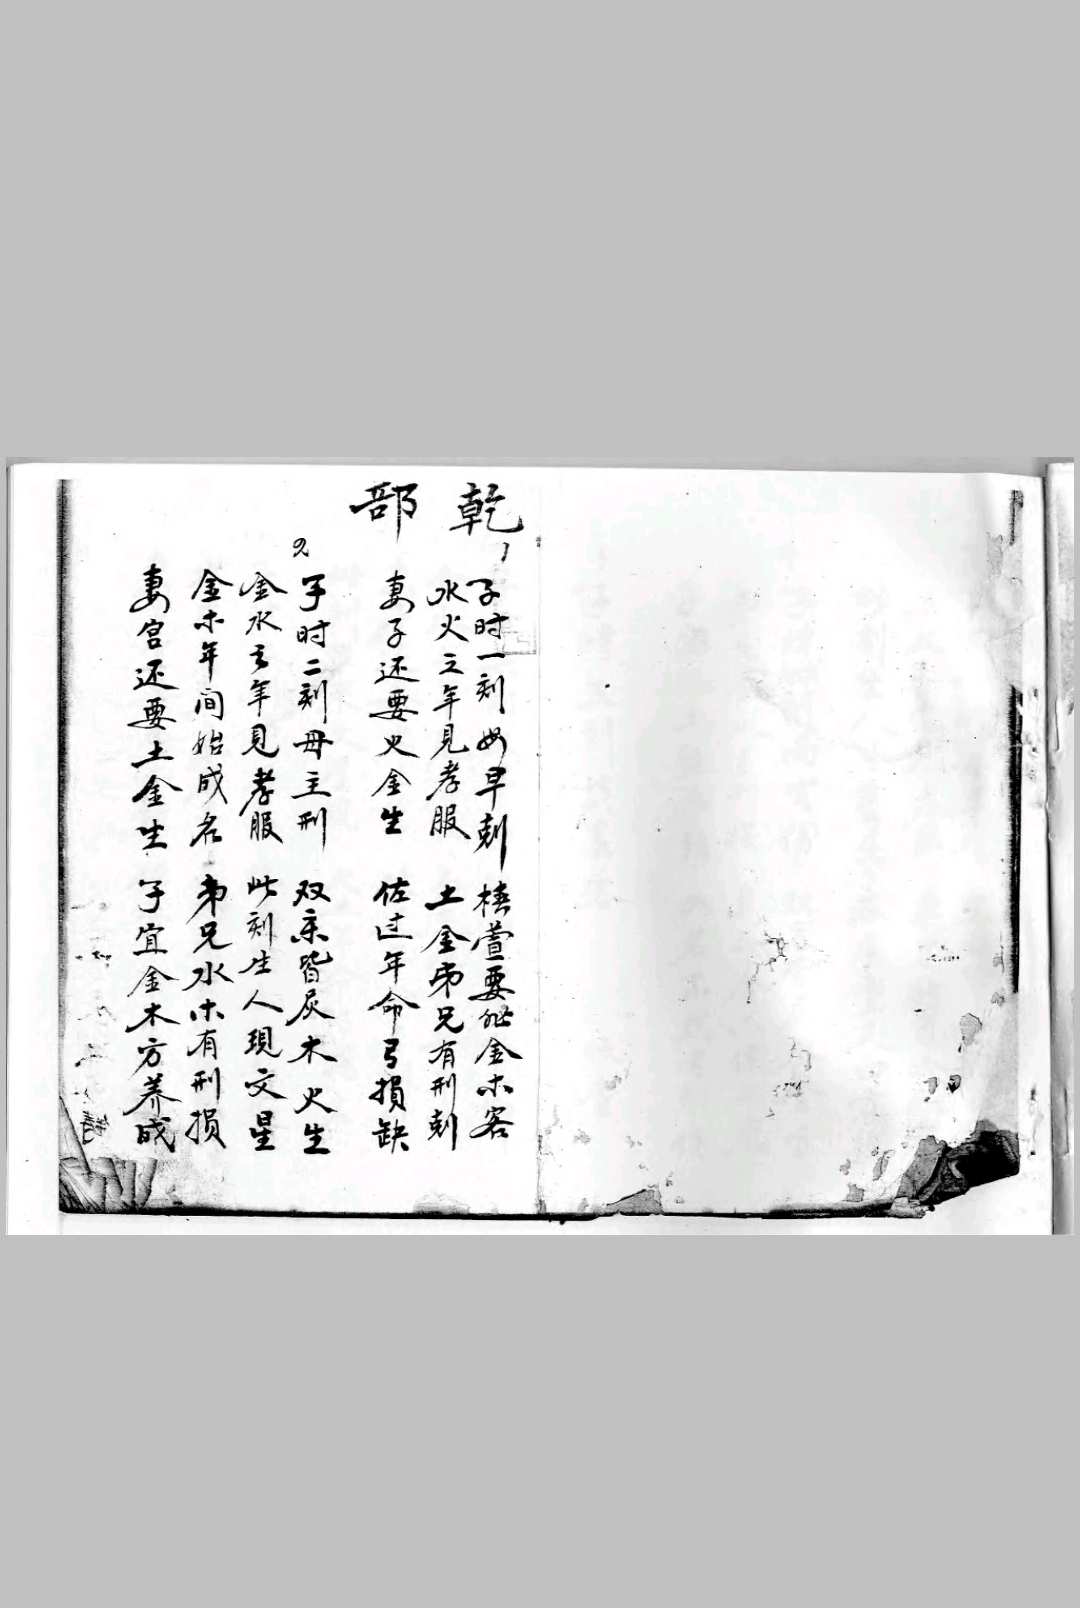 乾部
1
子时一刻母早刻 椿萱要然金木客
水火之年見孝服 土金弟兄有刑刻
妻子还要火金生 佐过年命弓損缺
2
子时二刻母主刑 双亲皆辰木火生
金水之年見孝服 此刻生人現文星
金木年间始成名 弟兄水木有刑損
妻宫还要土金生 子宜金木方养成